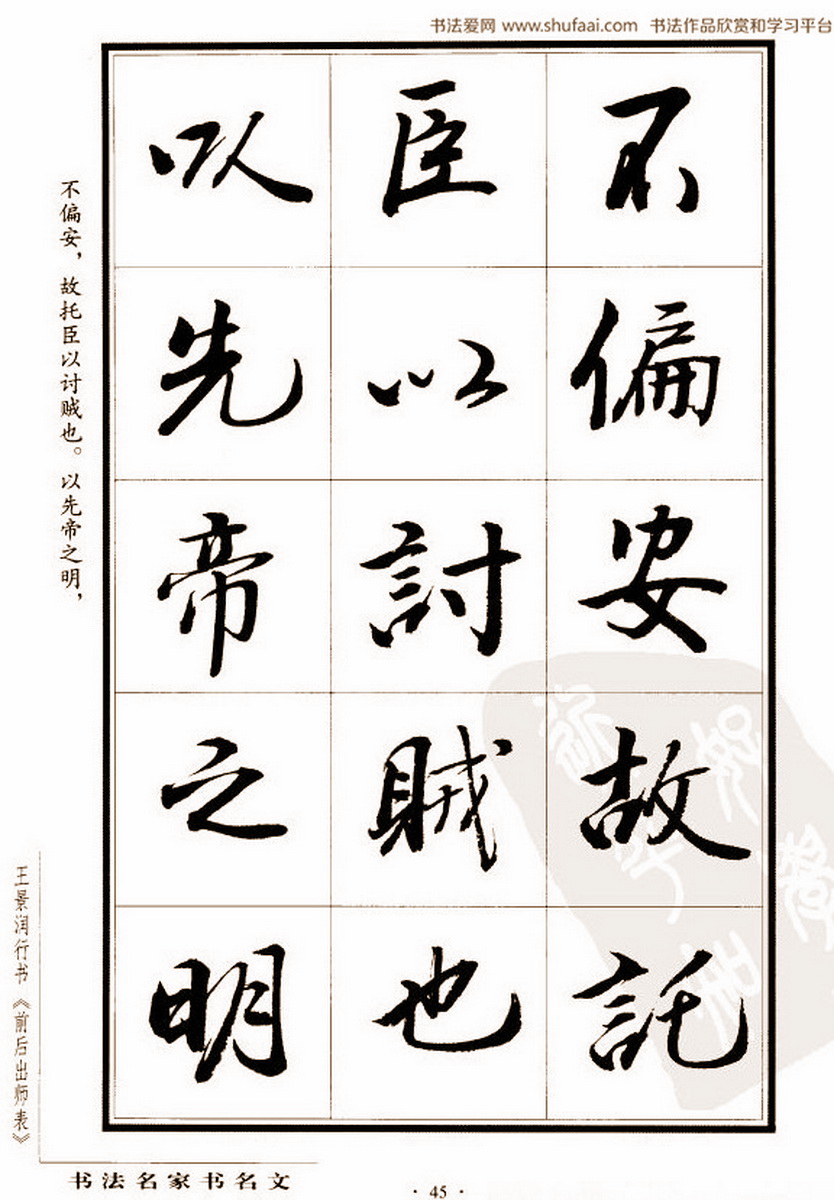 书法爱网 www.shufaai.com 书法作品欣赏和学习平台
不偏安故託
臣以討賊也
以先帝之明
不偏安，故托臣以讨贼也。以先帝之明，
王景润行书《前后出师表》
书法名家书名文
· 45 ·